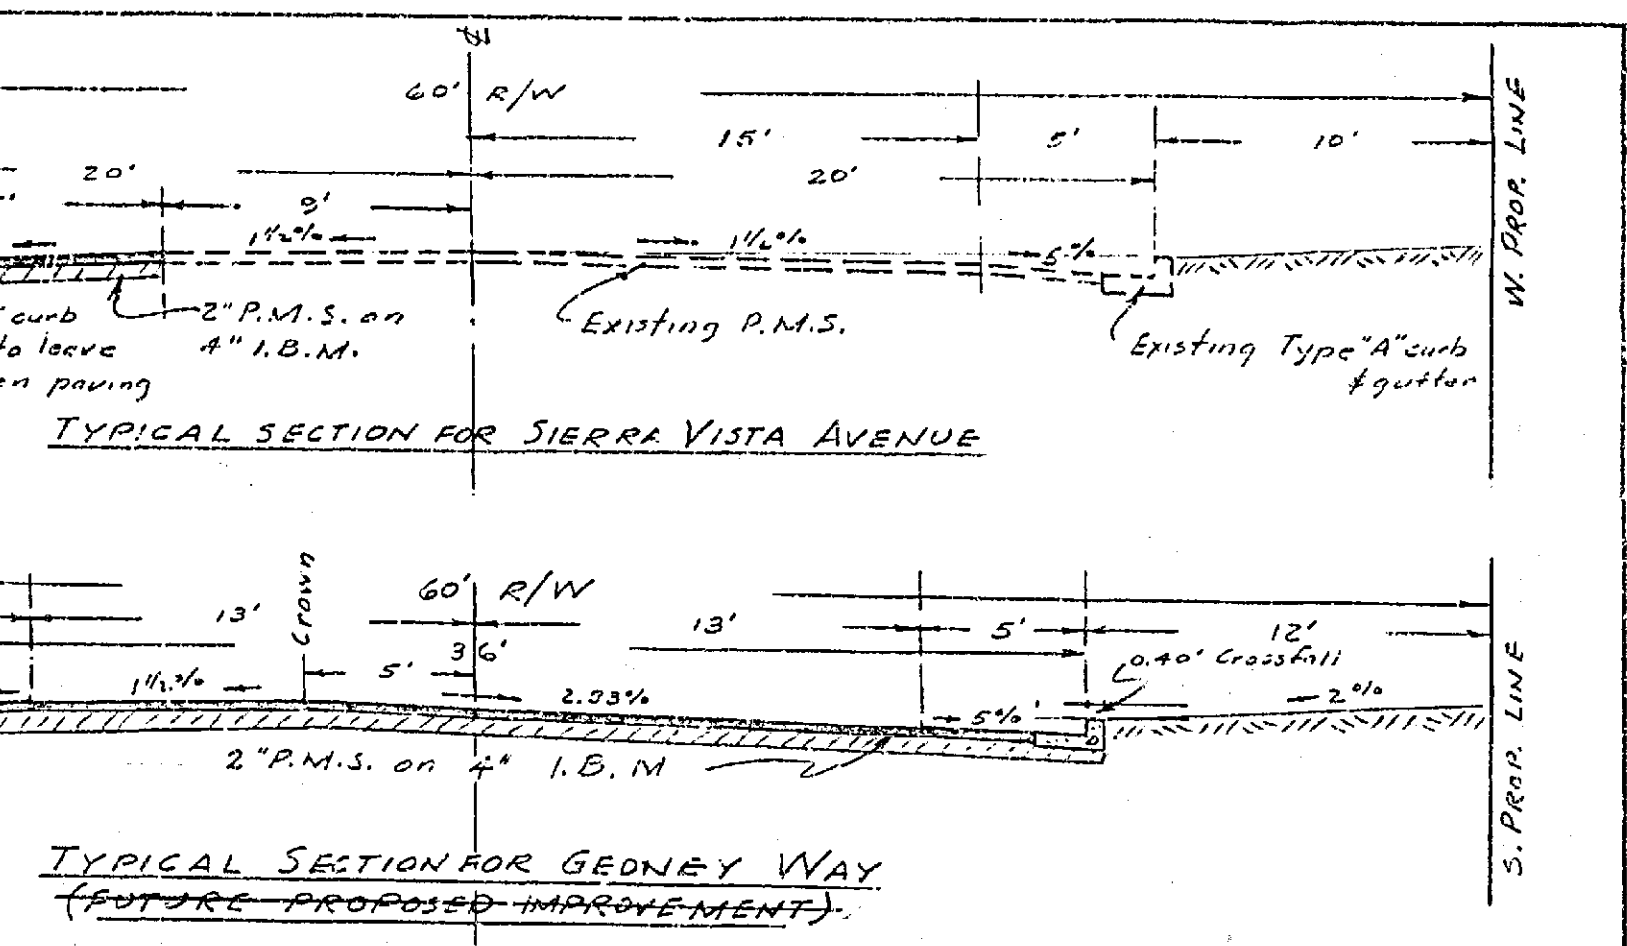 60' R/W
15'
5'
10'
20'
20'
9'
1 1/2 %
1 1/2 %
5 %
W. PROP. LINE
curb
to leave
en paving
2" P.M.S. on
4" I.B.M.
Existing P.M.S.
Existing Type "A" curb
& gutter
TYPICAL SECTION FOR SIERRA VISTA AVENUE
Crown
60' R/W
13'
13'
5'
12'
36'
5'
0.40' Crossfall
1 1/2 %
2.33%
5%
2 %
2" P.M.S. on 4" I.B.M
S. PROP. LINE
TYPICAL SECTION FOR GEDNEY WAY
(FUTURE PROPOSED IMPROVEMENT).